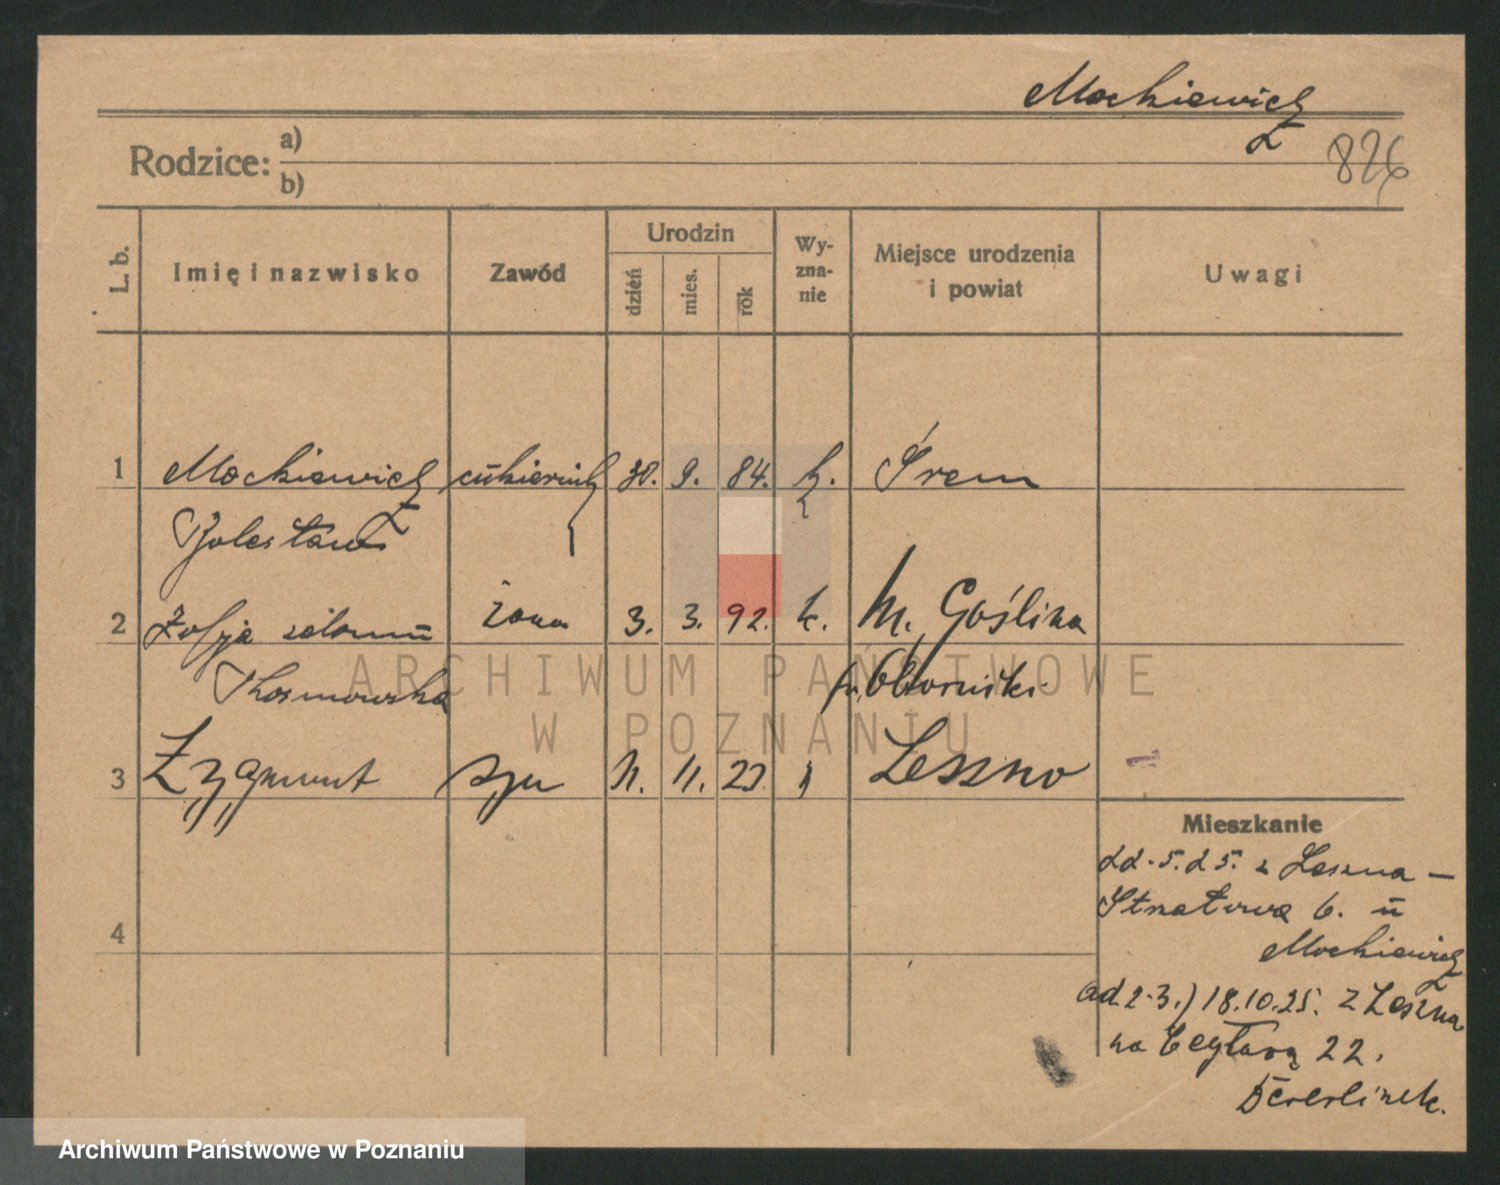 Mockiewicz
826
Rodzice: a)
b)
L. b. Imię i nazwisko Zawód Urodzin dzień mies. rok Wy-zna-nie Miejsce urodzenia i powiat Uwagi
1 Mockiewicz cukiernik 30. 9. 84. k. Śrem
Bolesław
2 Zofja żona 3. 3. 92. k. M. Goślina
Kosmowska Oborniki
3 Zygmunt syn 11. 11. 23 Leszno
4
Mieszkanie
22.5.25. z Leszna –
6. u
Mockiewicz
ad. 2-3.) 18.10.25. z Leszna
na 22.
ARCHIWUM PAŃSTWOWE
W POZNANIU
Archiwum Państwowe w Poznaniu